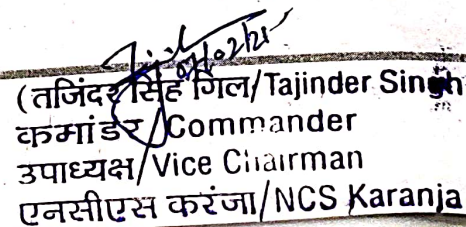 02/21
(तजिंदर सिंह गिल/Tajinder Singh
कमांडर/Commander
उपाध्यक्ष/Vice Chairman
एनसीएस करंजा/NCS Karanja